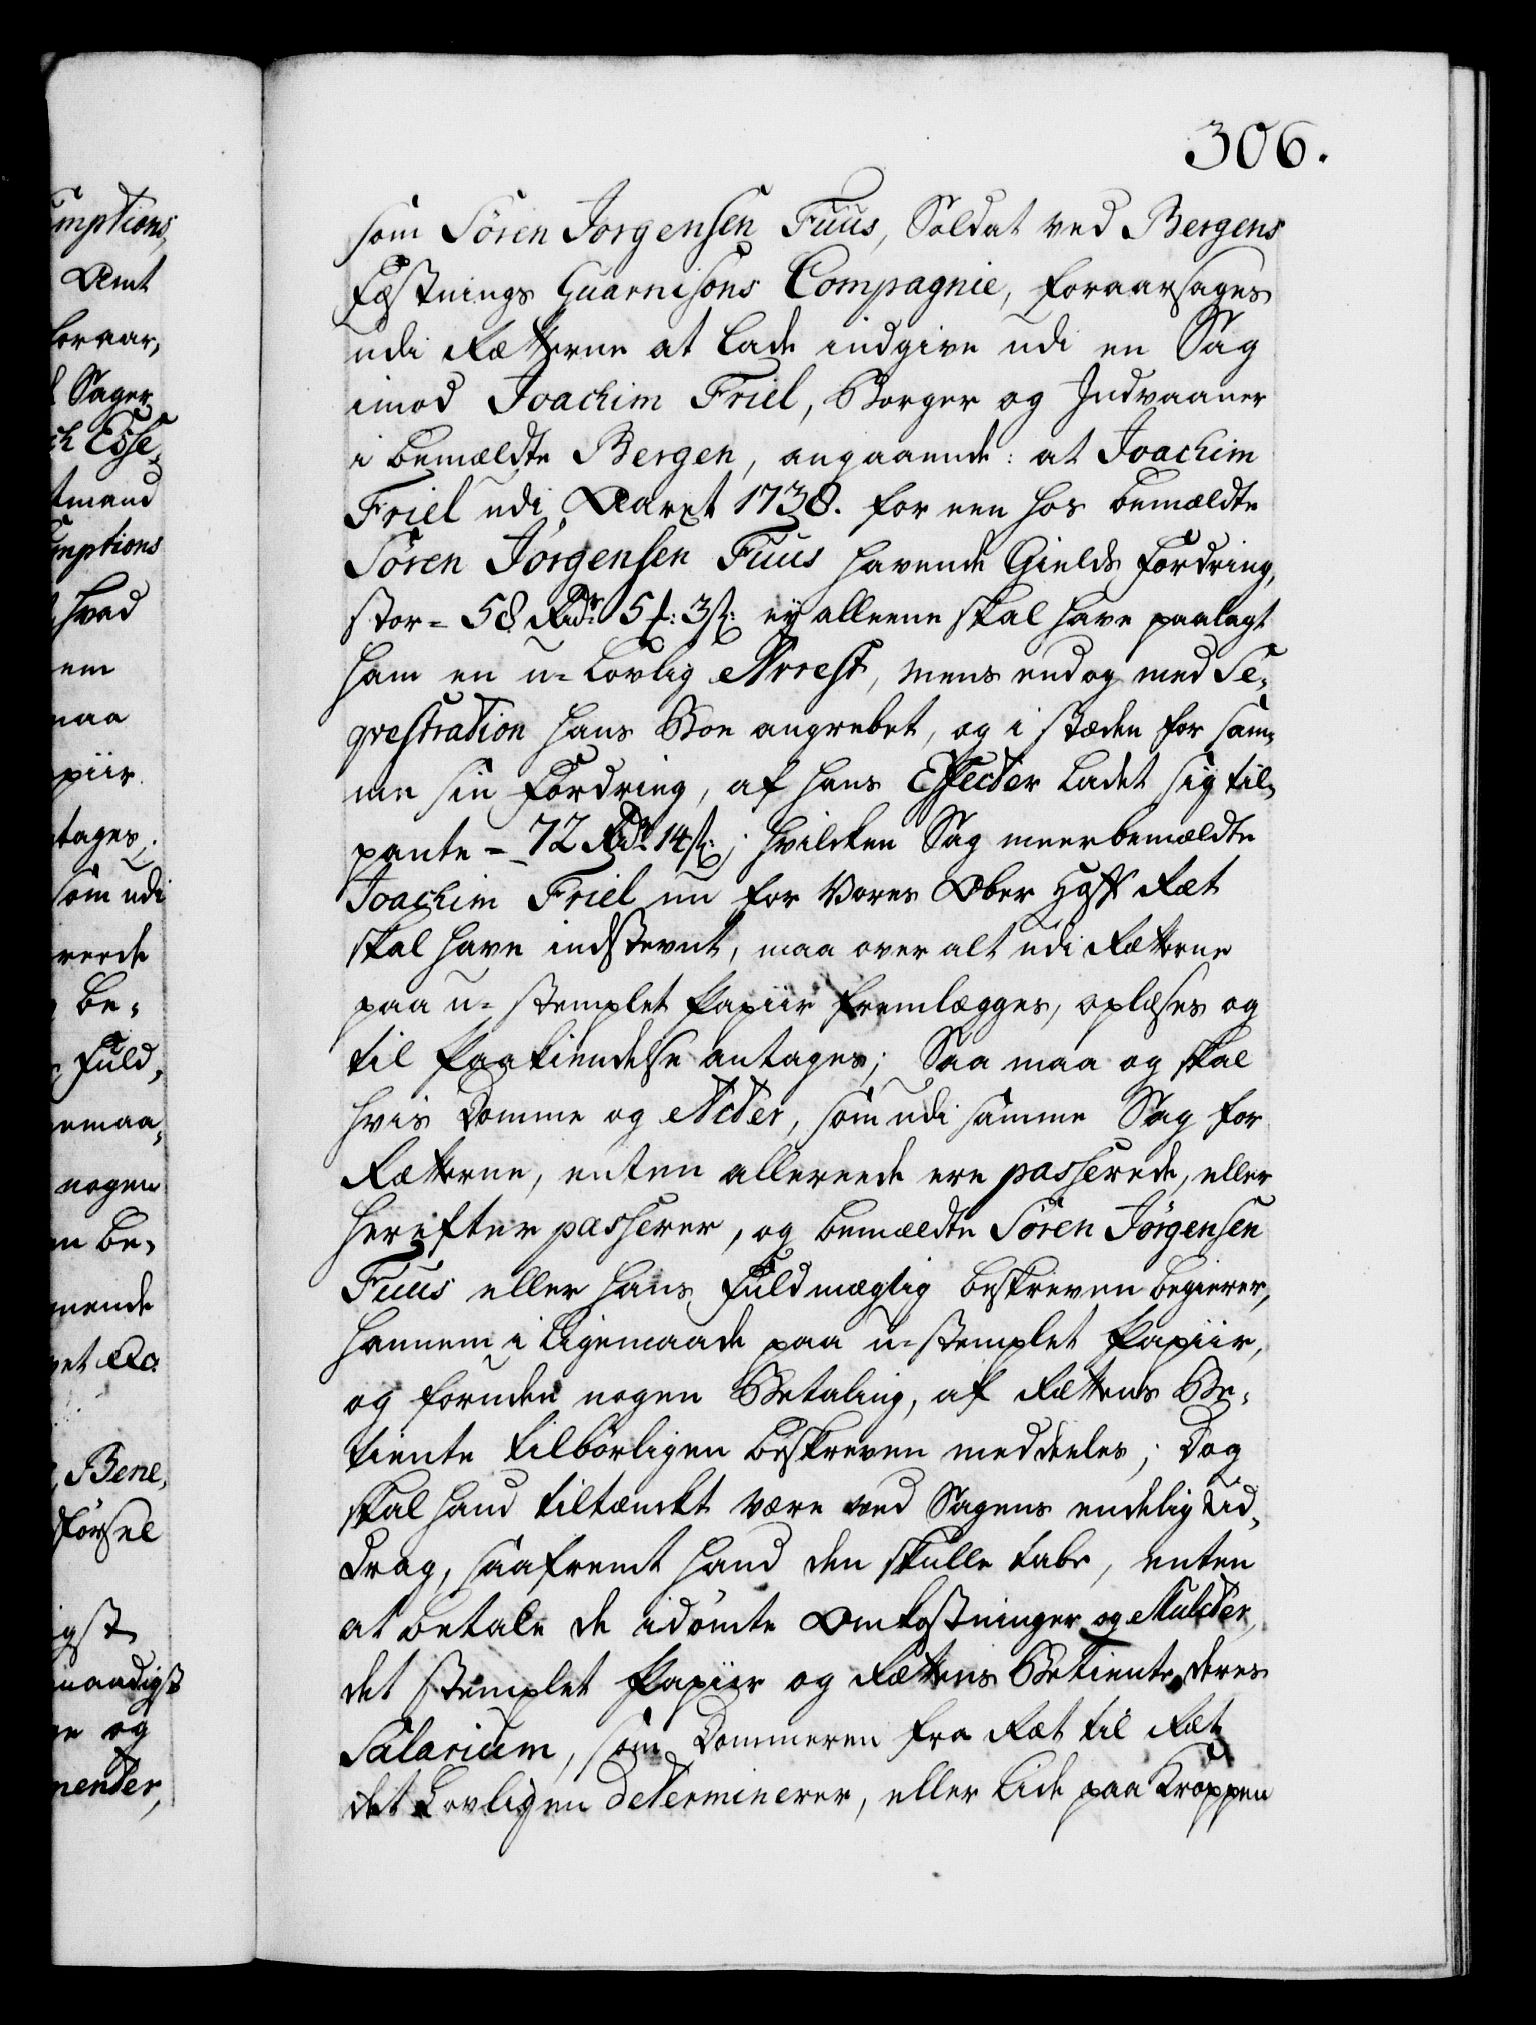 306.
som Sören Jorgensen Fuus, Soldat ved Bergens
Fæstnings Guarnisons Compagnie, foraarsages
udi Rætterne at lade indgive udi en Sag
imod Joachim Friel, Borger og Indvaaner
i bemældte Bergen, angaaende: at Joachim
Friel udi Aaret 1738. for een hos bemældte
Sören Jörgensen Fuus havende Gields Fordring,
stor = 58 Rdr 5 ƒ: 3 ß: ey alleene skal have paalagt
ham en u-lovlig Arrest, mens endog med Se-
qvestration hans Boe angrebet, og i stæden for sam-
me sin Fordring, af hans Effecter ladet sig til-
pante = 72 Rdr 14 ß:; hvilcken Sag meerbemældte
Joachim Friel nu for Vores Ober Hoff Ræt
skal have indstevnt, maa over alt udi Rætterne
paa u-stemplet Papiir fremlægges, oplæses og
til Paakiendelse antages; Saa maa og skal
hvis Domme og Acter, som udi samme Sag for
Rætterne, enten allereede ere passerede, eller
herefter passerer, og bemældte Sören Jörgensen
Fuus eller hans Fuldmægtig beskreven begierer,
hannem i ligemaade paa u-stemplet Papiir,
og foruden nogen Betaling, af Rættens Be-
tiente tilbörligen beskreven meddeeles; Dog
skal hand tiltænckt være ved Sagens endelig Ud-
drag, saafremt hand den skulle tabe, enten
at betale de idömte Omkostninger og Mulcter,
det stemplet Papiir og Rættens Betiente, deres
Salarium, som Dommeren fra Ræt til Ræt
det Lovligen determinerer, eller lide paa Kroppen
mptions,
Amt
foraar,
Sager
Esse,
tmand
mptions
hvad
em
maa
piir
tages,
som udi
reede
be-
Fuld,
emaa,
nogen
be-
nende
Bene,
gst
naadigst
og
menter,